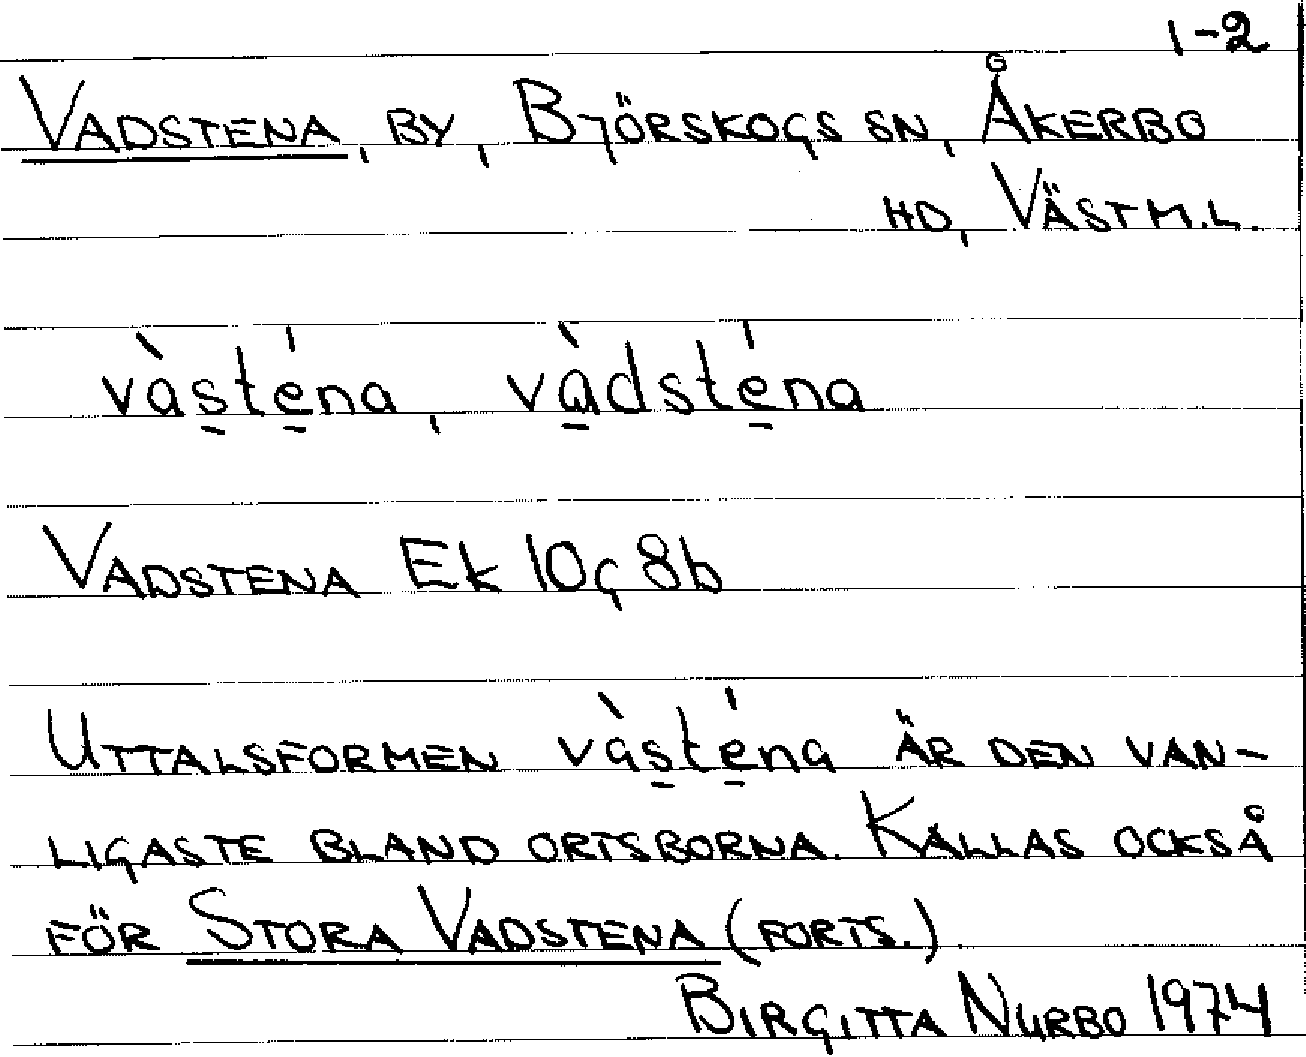 1-2
VADSTENA, BY, BJÖRSKOGS SN, ÅKERBO
HD, VÄSTM.L.
và̱s̱té̱na, và̱dsté̱na
VADSTENA EK 10g 8b
UTTALSFORMEN vàs̱té̱na ÄR DEN VAN-
LIGASTE BLAND ORTSBORNA. KALLAS OCKSÅ
FÖR STORA VADSTENA (FORTS.)
BIRGITTA NURBO 1974